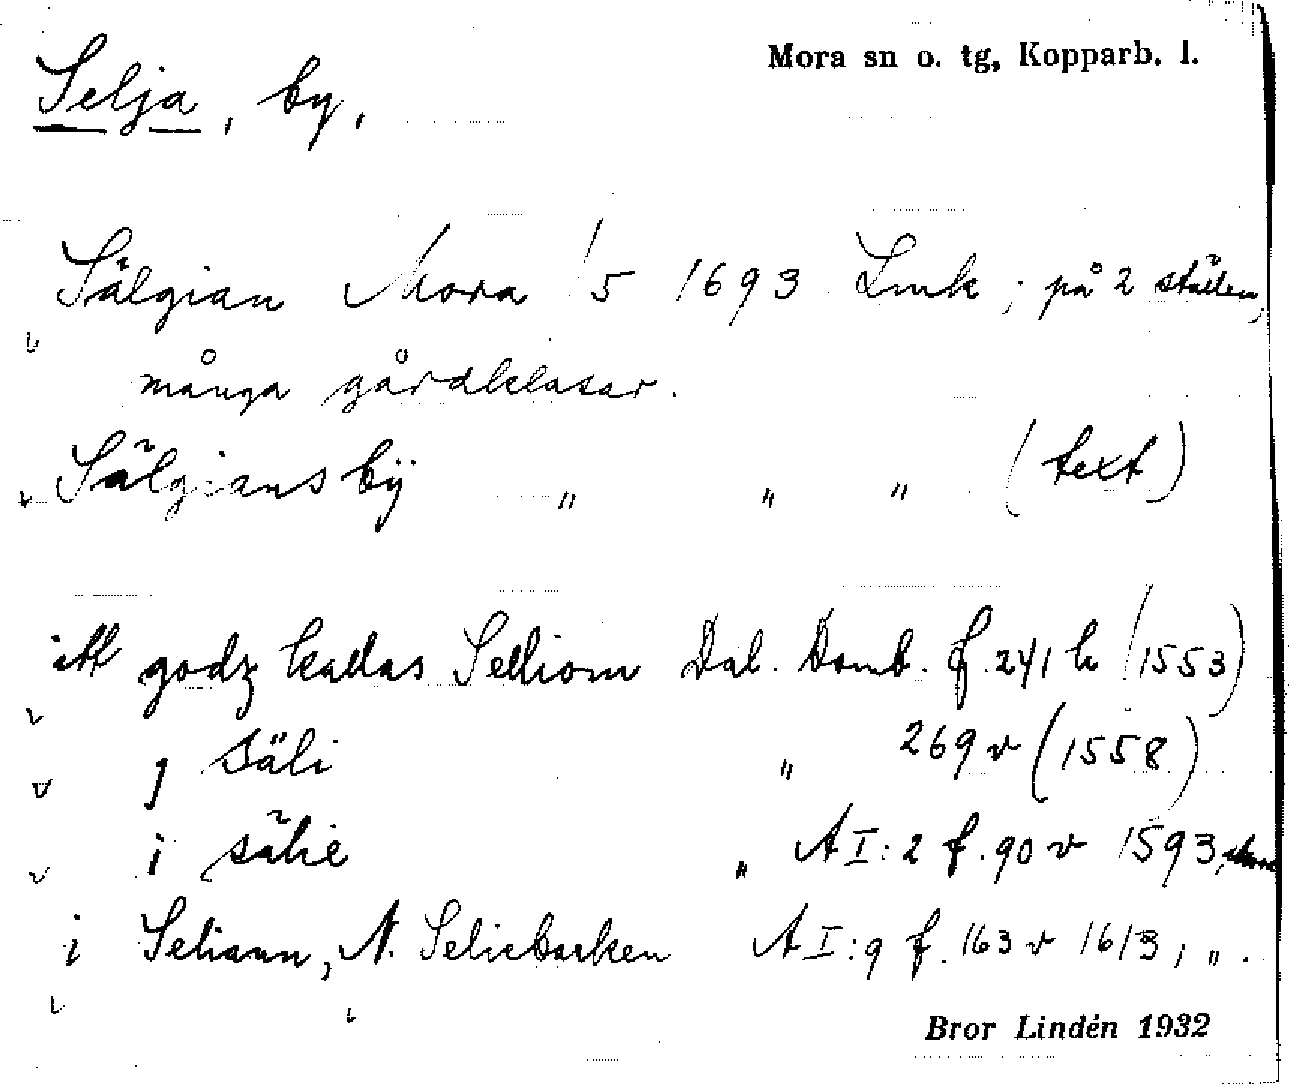 Mora sn o. tg, Kopparb. l.
Selja, by,
Sälgian Mora 1/5 1693 Lmk; på 2 ställen,
många gårdklasar.
Sälgians bÿ " " " (text)
itt godz kallas Selliom Dal. Domb. f. 241 h (1553)
j Säli " 269 v (1558)
i sälie " A I:2 f. 90 v 1593,
i Seliann, N. Seliebacken A I:9 f. 163 v 1613, ".
Bror Lindén 1932